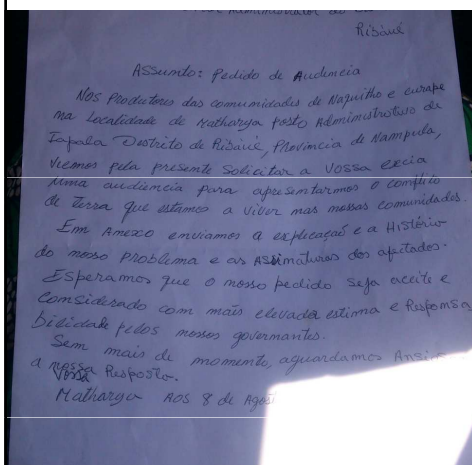 Administrador do
Ribáuè
Assunto: Pedido de Audiencia
Nós Produtores das comunidades de Naquitho e eurape
na Localidade de Matharya Posto Administrativo de
Iapala Destrito de Ribáuè, Província de Nampula,
viemos pela presente solicitar a Vossa excia
uma audiência para apresentarmos o conflito
de terra que estamos a viver nas nossas comunidades.
Em Anexo enviamos a explicação e a História
do nosso problema e as Assinaturas dos afitados.
Esperamos que o nosso pedido seja aceite e
considerado com mais elevada estima e Responsa
bilidade pelos nossos governantes.
Sem mais de momento, aguardamos
a nossa Vossa Resposta.
Matharya Aos 8 de